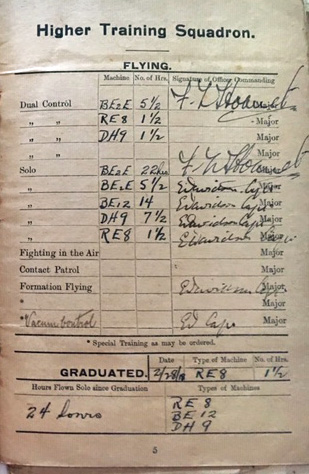 Higher Training Squadron.
FLYING.
Machine No. of Hrs. Signature of Officer Commanding
Dual Control BE2E 5½ Major
" " RE8 1½ Major
" " DH9 1½ Major
" " Major
Solo BE2E 22hrs Major
" BE2E 5½ Capt Major
" BE12 14 Capt Major
" DH9 7½ Capt Major
" RE8 1½ Major
Fighting in the Air Major
Contact Patrol Major
Formation Flying Capt Major
* Major
*Vacuum control Capt Major
* Special Training as may be ordered.
Date Type of Machine No. of Hrs.
GRADUATED. RE8 1½
Hours Flown Solo since Graduation Types of Machines
24 hours RE8
BE12
DH9
5